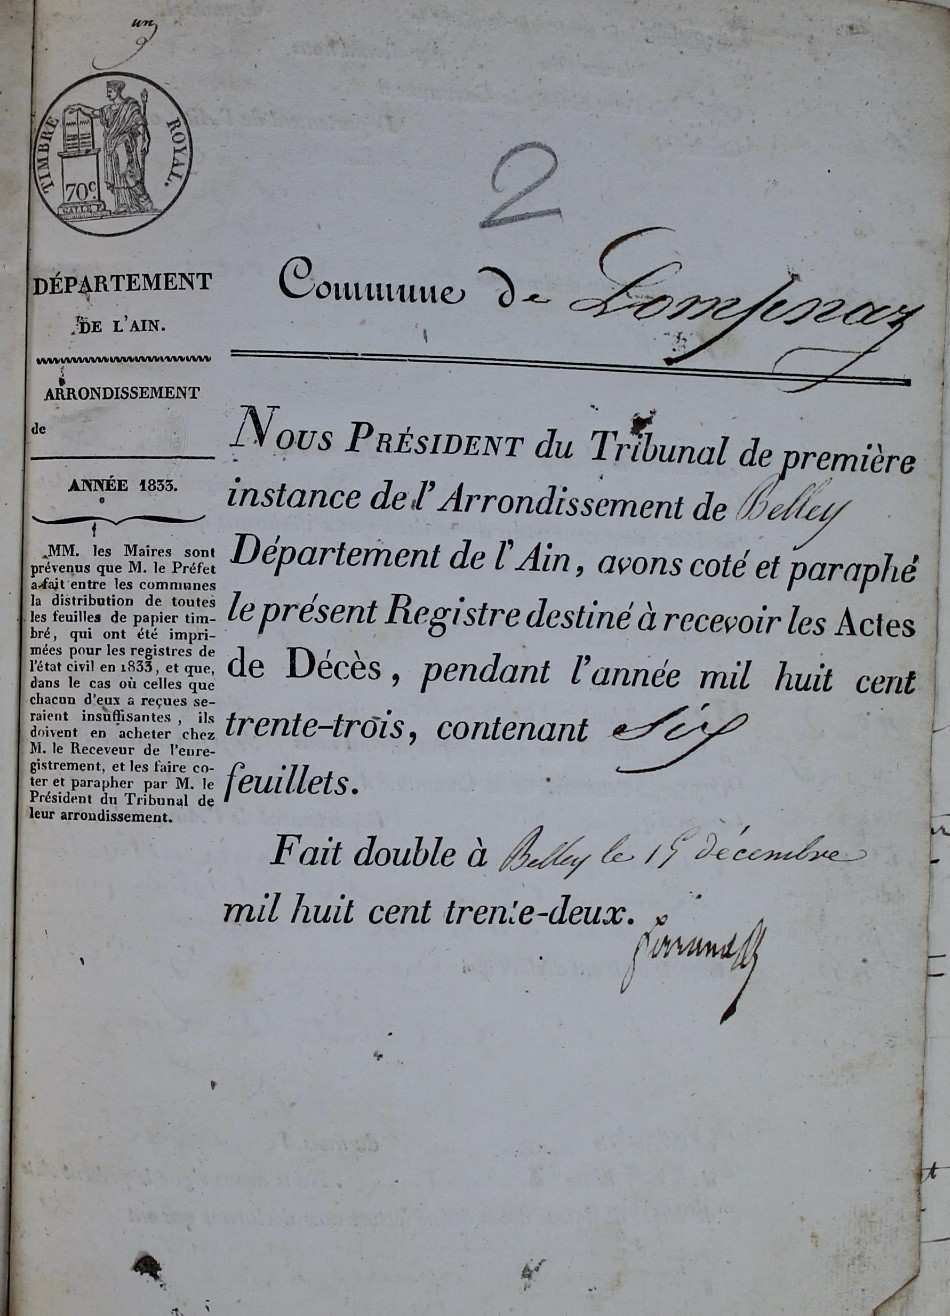 un
TIMBRE ROYAL.
70c
2
Commune de Lompnaz
DÉPARTEMENT
DE L'AIN.
ARRONDISSEMENT
de
ANNÉE 1833.
MM. les Maires sont
prévenus que M. le Préfet
a fait entre les communes
la distribution de toutes
les feuilles de papier tim-
bré, qui ont été impri-
mées pour les registres de
l'état civil en 1833, et que,
dans le cas où celles que
chacun d'eux a reçues se-
raient insuffisantes, ils
doivent en acheter chez
M. le Receveur de l'enre-
gistrement, et les faire co-
ter et parapher par M. le
Président du Tribunal de
leur arrondissement.
NOUS PRÉSIDENT du Tribunal de première
instance de l'Arrondissement de Belley
Département de l'Ain, avons coté et paraphé
le présent Registre destiné à recevoir les Actes
de Décès, pendant l'année mil huit cent
trente-trois, contenant Six
feuillets.
Fait double à Belley le 15 décembre
mil huit cent trente-deux.